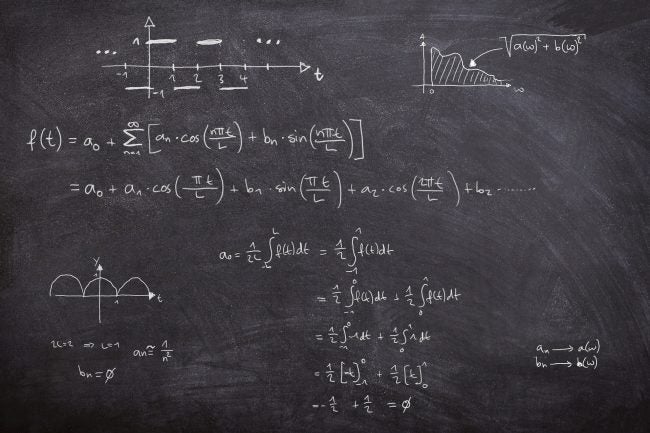 ... 1 ...
-1 1 2 3 4 t
-1
A √(a(ω)² + b(ω)²)
0 ω
f(t) = a₀ + ∑ₙ₌₁^∞ [aₙ·cos(nπt/L) + bₙ·sin(nπt/L)]
= a₀ + a₁·cos(πt/L) + b₁·sin(πt/L) + a₂·cos(2πt/L) + b₂.........
a₀ = 1/2L ∫₋L^L f(t)dt = 1/2 ∫₋₁^1 f(t)dt
= 1/2 ∫₋₁^0 f(t)dt + 1/2 ∫₀^1 f(t)dt
= 1/2 ∫₋₁^0 -1dt + 1/2 ∫₀^1 1dt
= 1/2 [-t]₋₁^0 + 1/2 [t]₀^1
= -1/2 + 1/2 = ∅
y
1
1 t
2L=2 ⇒ L=1
aₙ ≈ 1/n²
bₙ = ∅
aₙ → a(ω)
bₙ → b(ω)